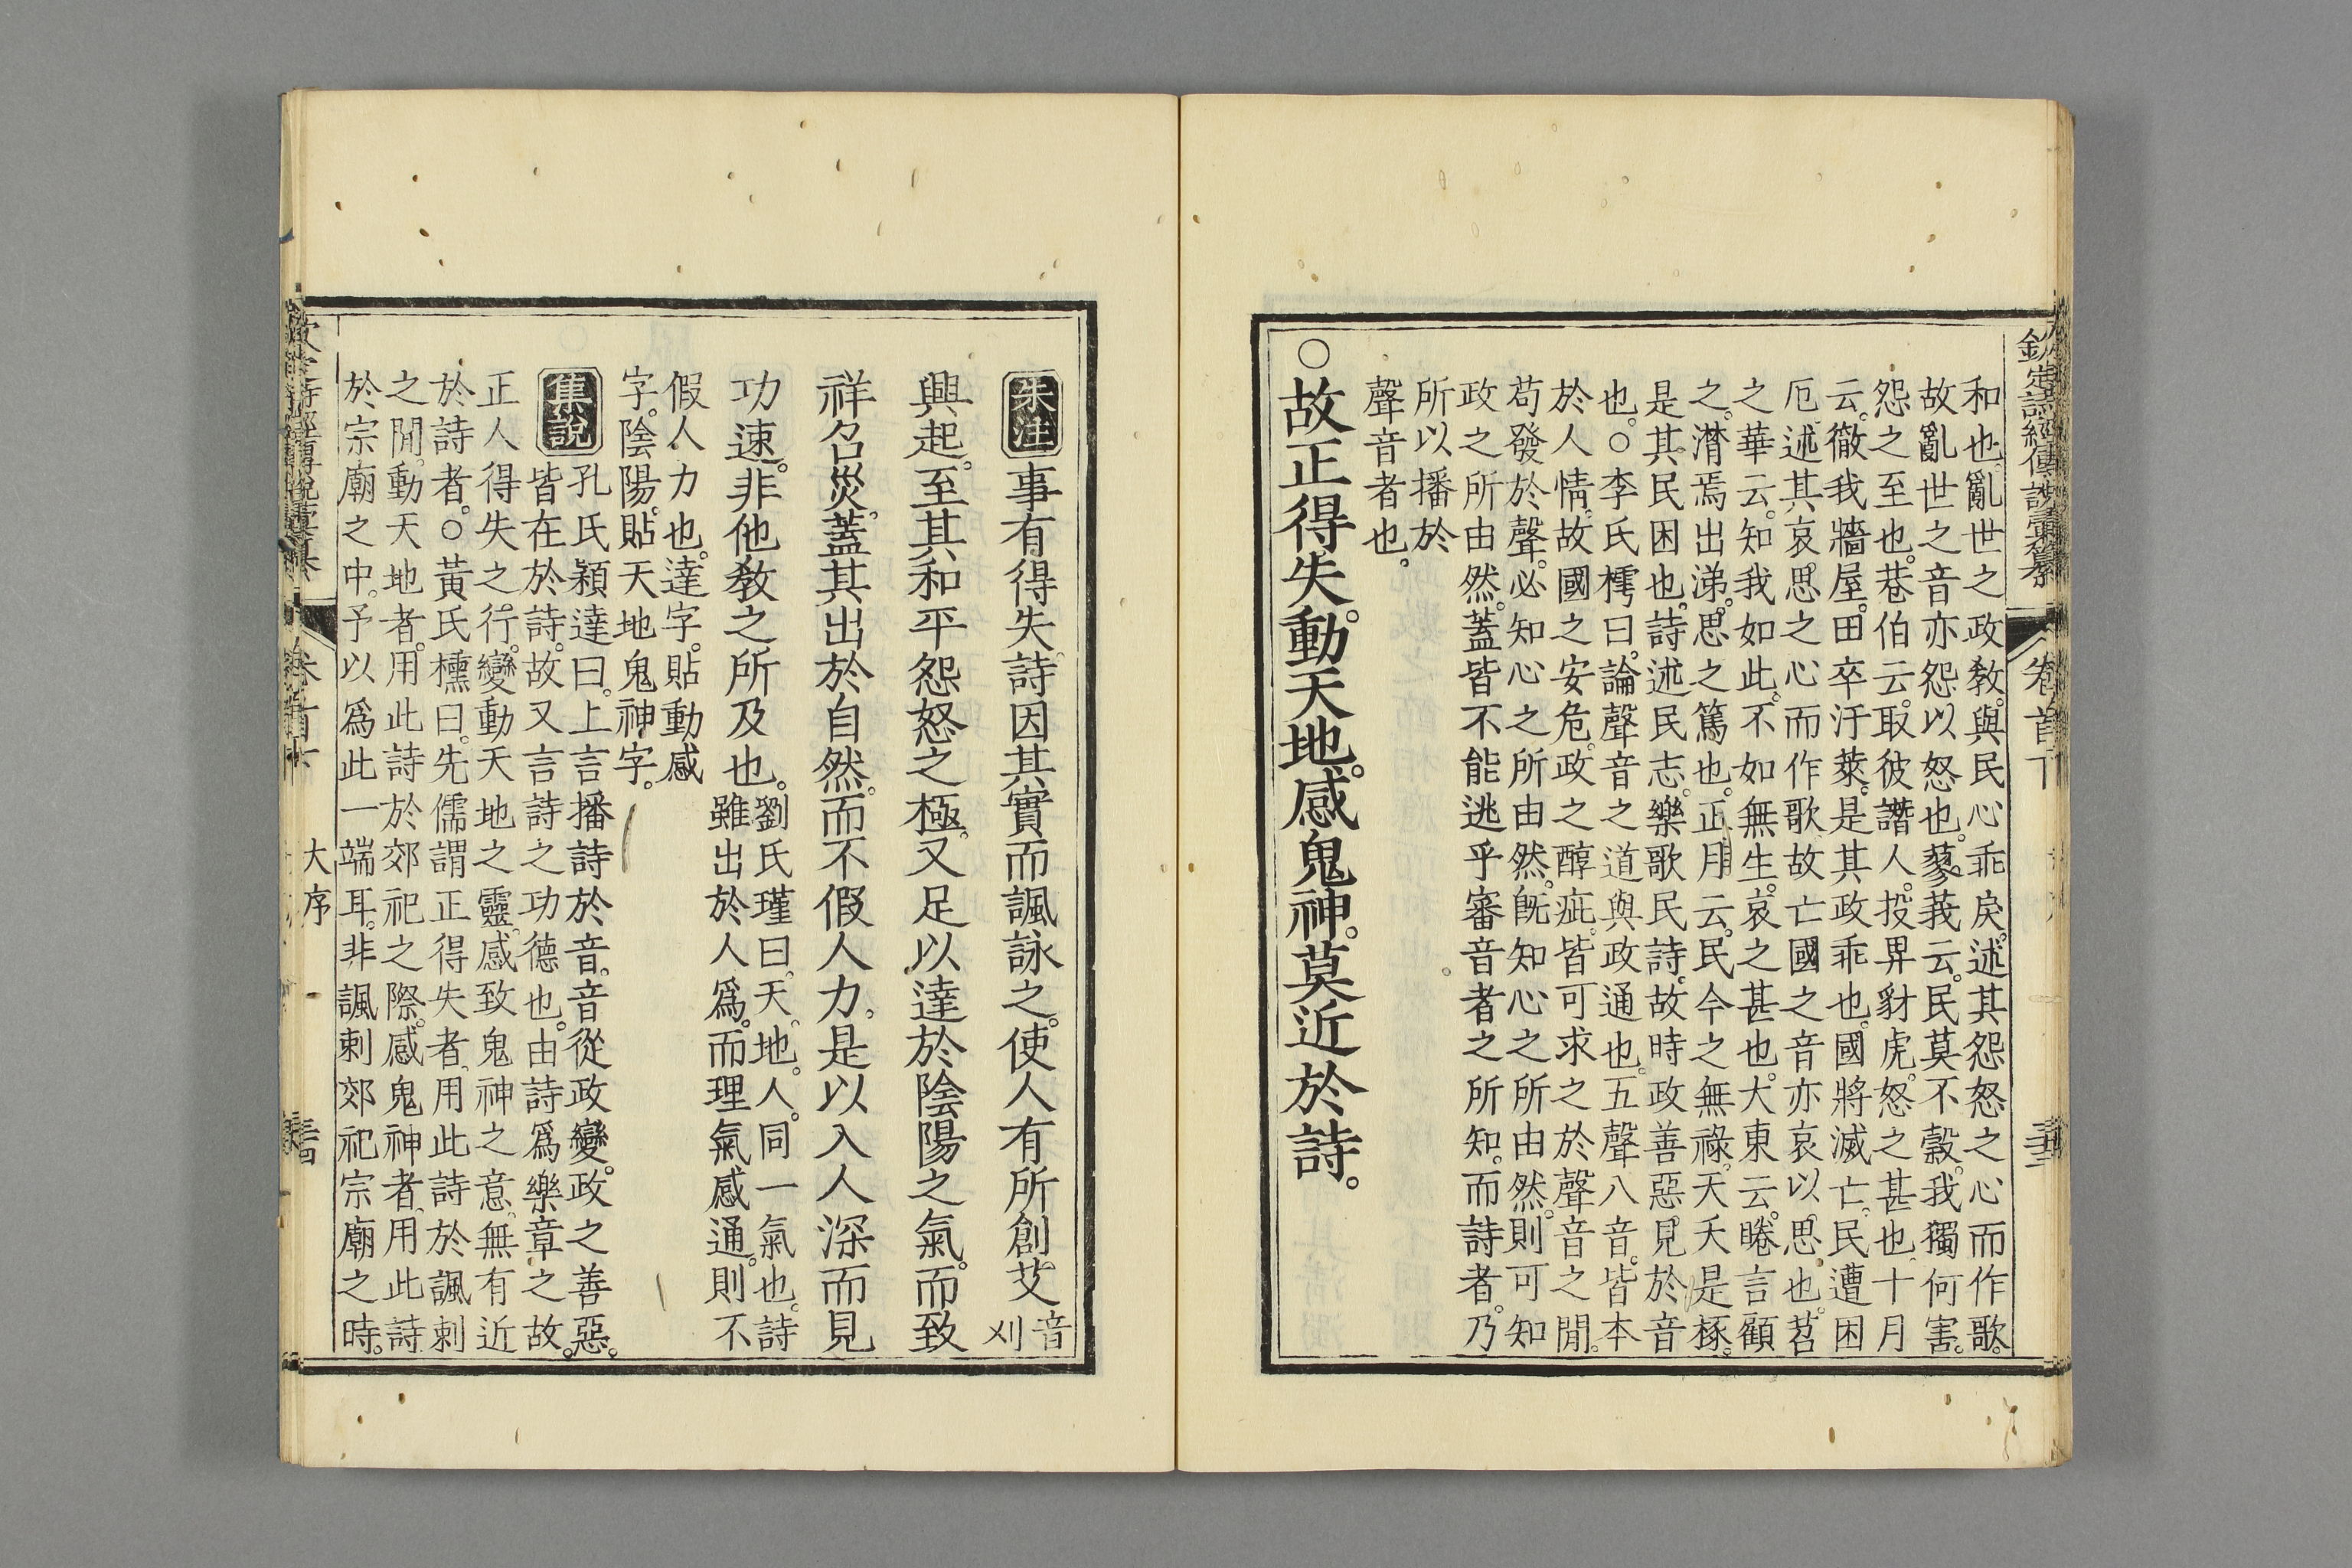 欽定詩經傳說彙纂 卷首下
和也。亂世之政敎。與民心乖戾。述其怨怒之心而作歌。
故亂世之音亦怨以怒也。蓼莪云。民莫不穀。我獨何害。
怨之至也。巷伯云。取彼譖人。投畀豺虎。怒之甚也。十月
云。徹我牆屋。田卒汙萊。是其政乖也。國將滅亡。民遭困
厄。述其哀思之心而作歌。故亡國之音亦哀以思也。苕
之華云。知我如此。不如無生。哀之甚也。大東云。睠言顧
之。潸焉出涕。思之篤也。正月云。民今之無祿。天夭是椓。
是其民困也。詩述民志。樂歌民詩。故時政善惡。見於音
也。○李氏樗曰。論聲音之道與政通也。五聲八音。皆本
於人情。故國之安危。政之醇疵。皆可求之於聲音之閒。
苟發於聲。必知心之所由然。旣知心之所由然。則可知
政之所由然。蓋皆不能逃乎審音者之所知。而詩者。乃
所以播於
聲音者也。
○故正得失。動天地。感鬼神。莫近於詩。
朱注 事有得失。詩因其實而諷詠之。使人有所創艾音刈
興起。至其和平怨怒之極。又足以達於陰陽之氣。而致
祥召災。蓋其出於自然。而不假人力。是以入人深而見
功速。非他敎之所及也。劉氏瑾曰。天。地。人。同一氣也。詩
雖出於人爲。而理氣感通。則不
假人力也。達字。貼動感
字。陰陽。貼天地鬼神字。
集說 孔氏穎達曰。上言播詩於音。音從政變。政之善惡。
皆在於詩。故又言詩之功德也。由詩爲樂章之故。
正人得失之行。變動天地之靈。感致鬼神之意。無有近
於詩者。○黃氏櫄曰。先儒謂正得失者。用此詩於諷刺
之閒。動天地者。用此詩於郊祀之際。感鬼神者。用此詩
於宗廟之中。予以爲此一端耳。非諷刺郊祀宗廟之時。
大序